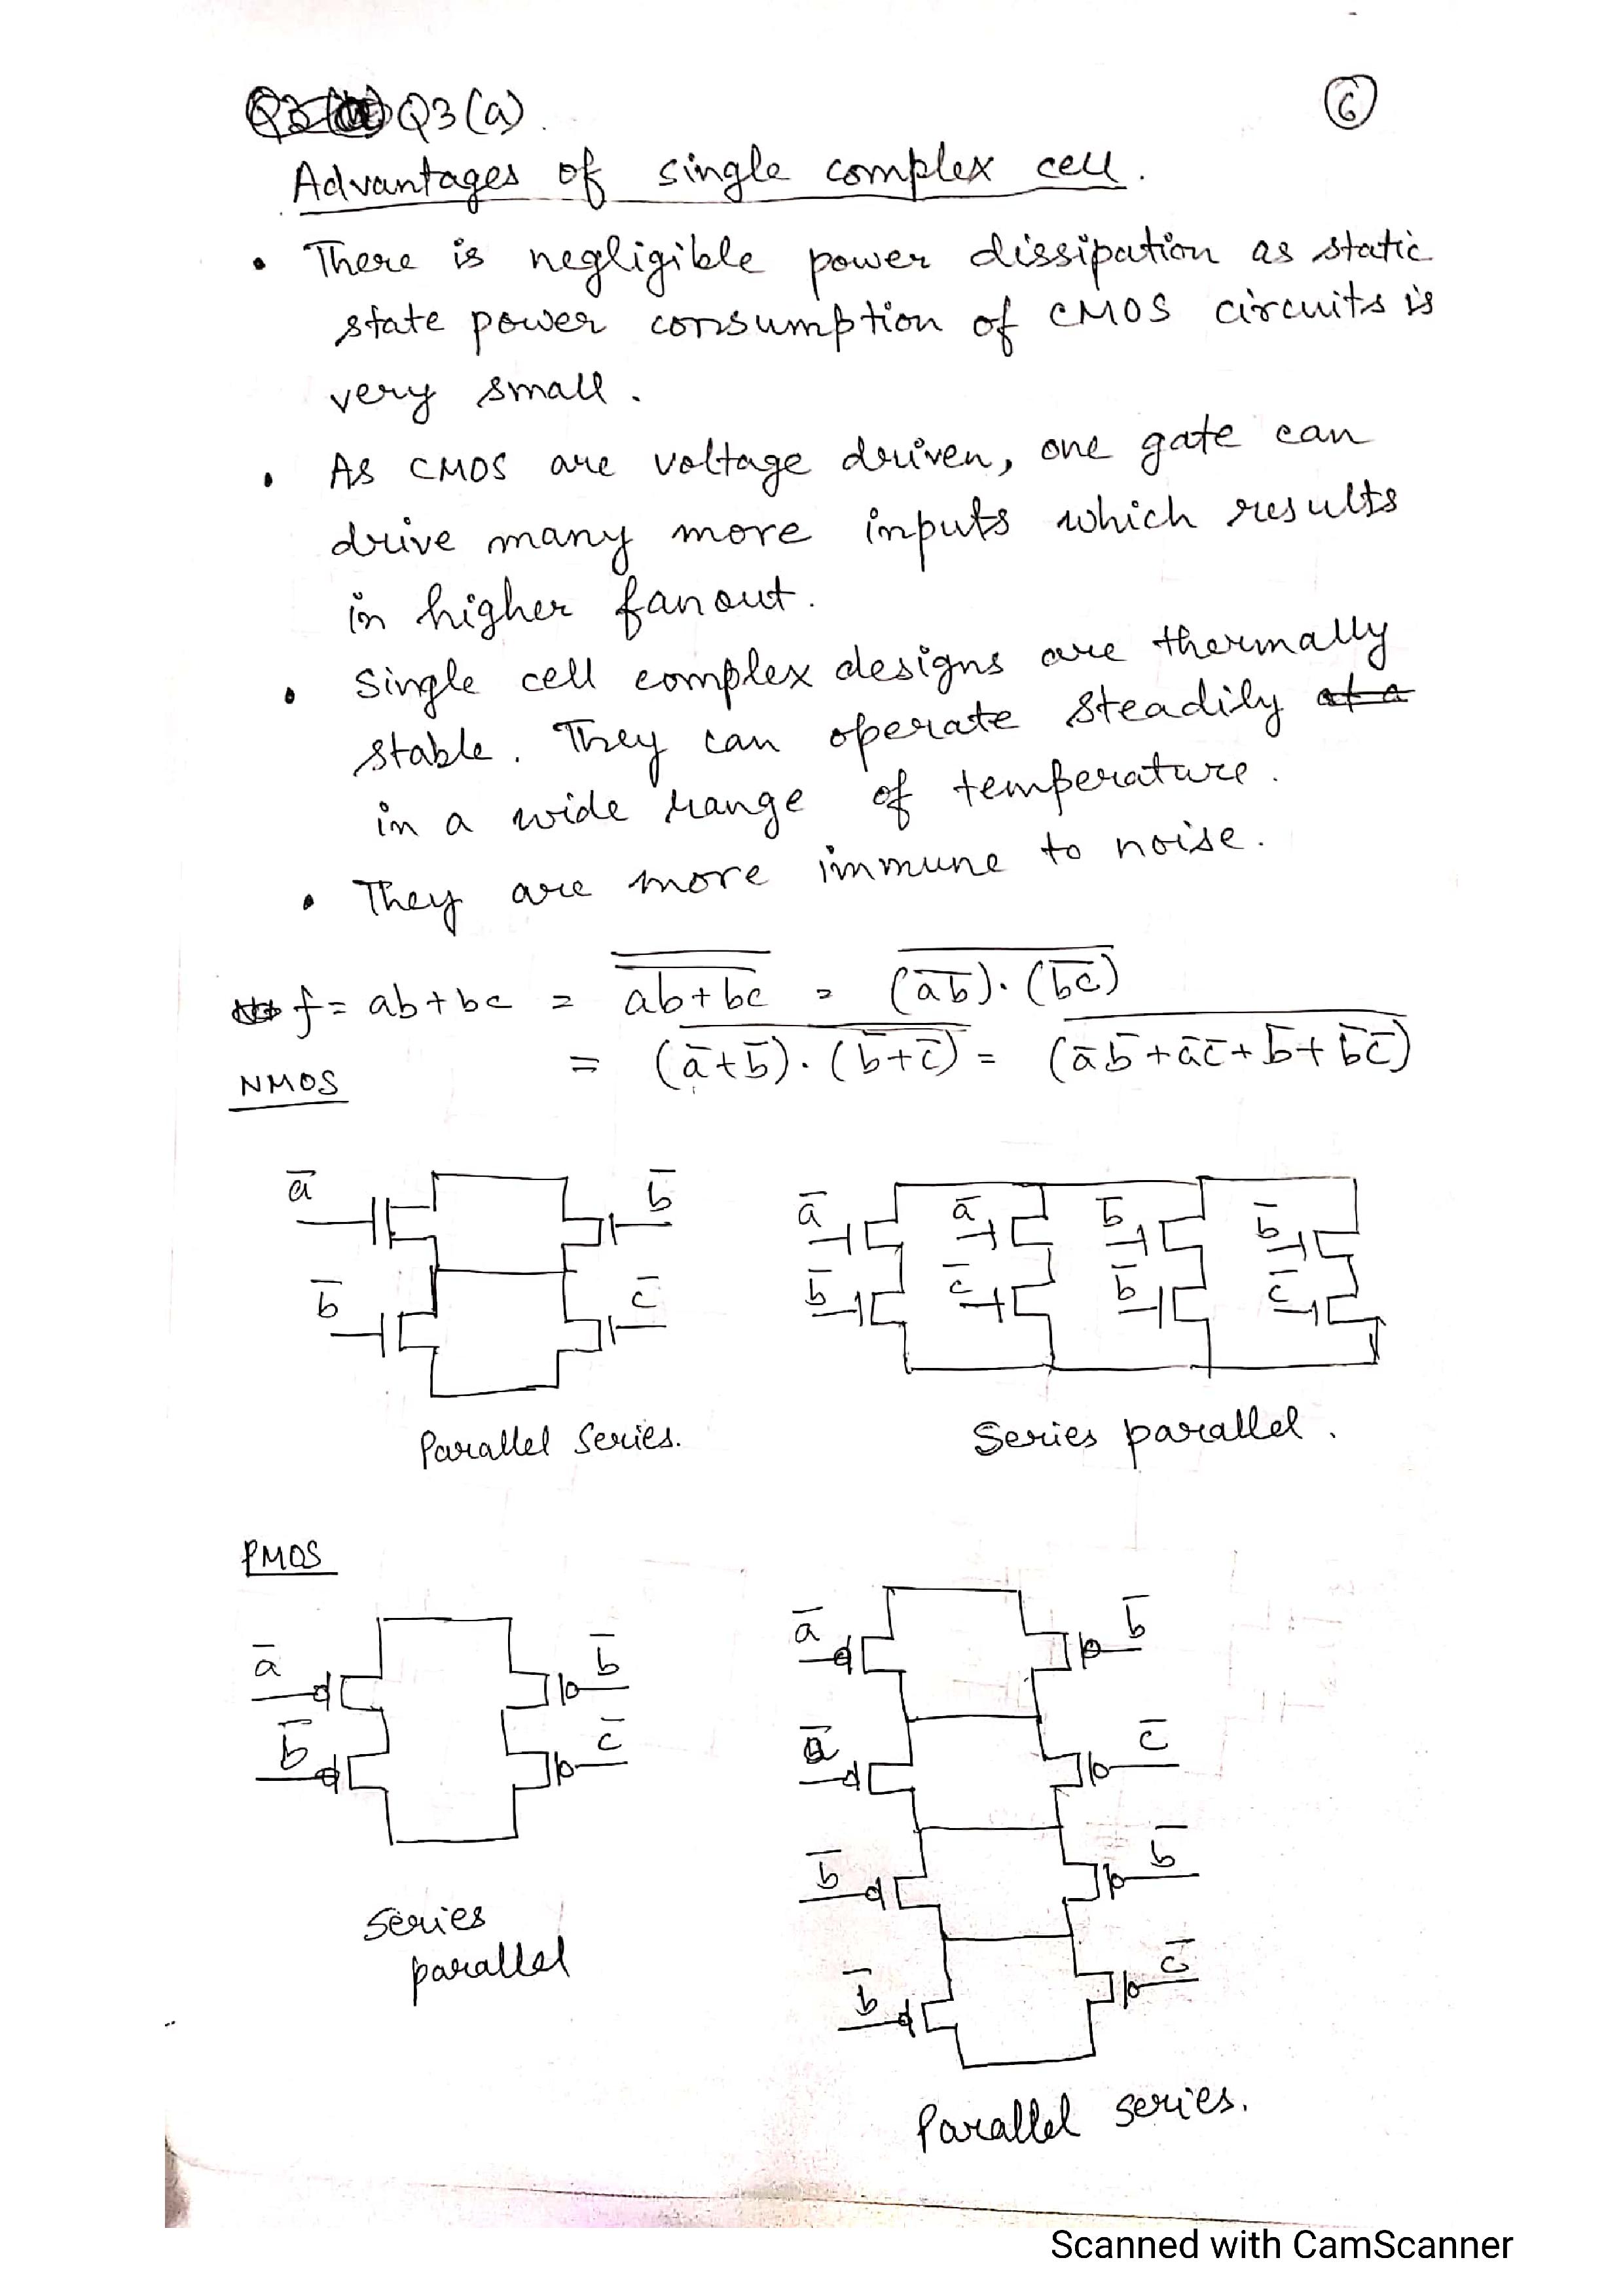 Q3(a).
6
Advantages of single complex cell.
• There is negligible power dissipation as static
state power consumption of CMOS circuits is
very small.
• As CMOS are voltage driven, one gate can
drive many more inputs which results
in higher fanout.
• Single cell complex designs are thermally
stable. They can operate steadily at a
in a wide range of temperature.
• They are more immune to noise.
f = ab+bc = \overline{\overline{ab+bc}} = \overline{(\overline{ab}).(\overline{bc})}
= \overline{(ā+b̄).(b̄+c̄)} = \overline{(āb̄+āc̄+b̄+b̄c̄)}
NMOS
ā b̄ ā ā b̄ b̄
b̄ c̄ b̄ c̄ b̄ c̄
Parallel Series. Series parallel.
PMOS
ā b̄ ā b̄
b̄ c̄ ā c̄
b̄ b̄
series
parallel
b̄ c̄
Parallel series.
Scanned with CamScanner